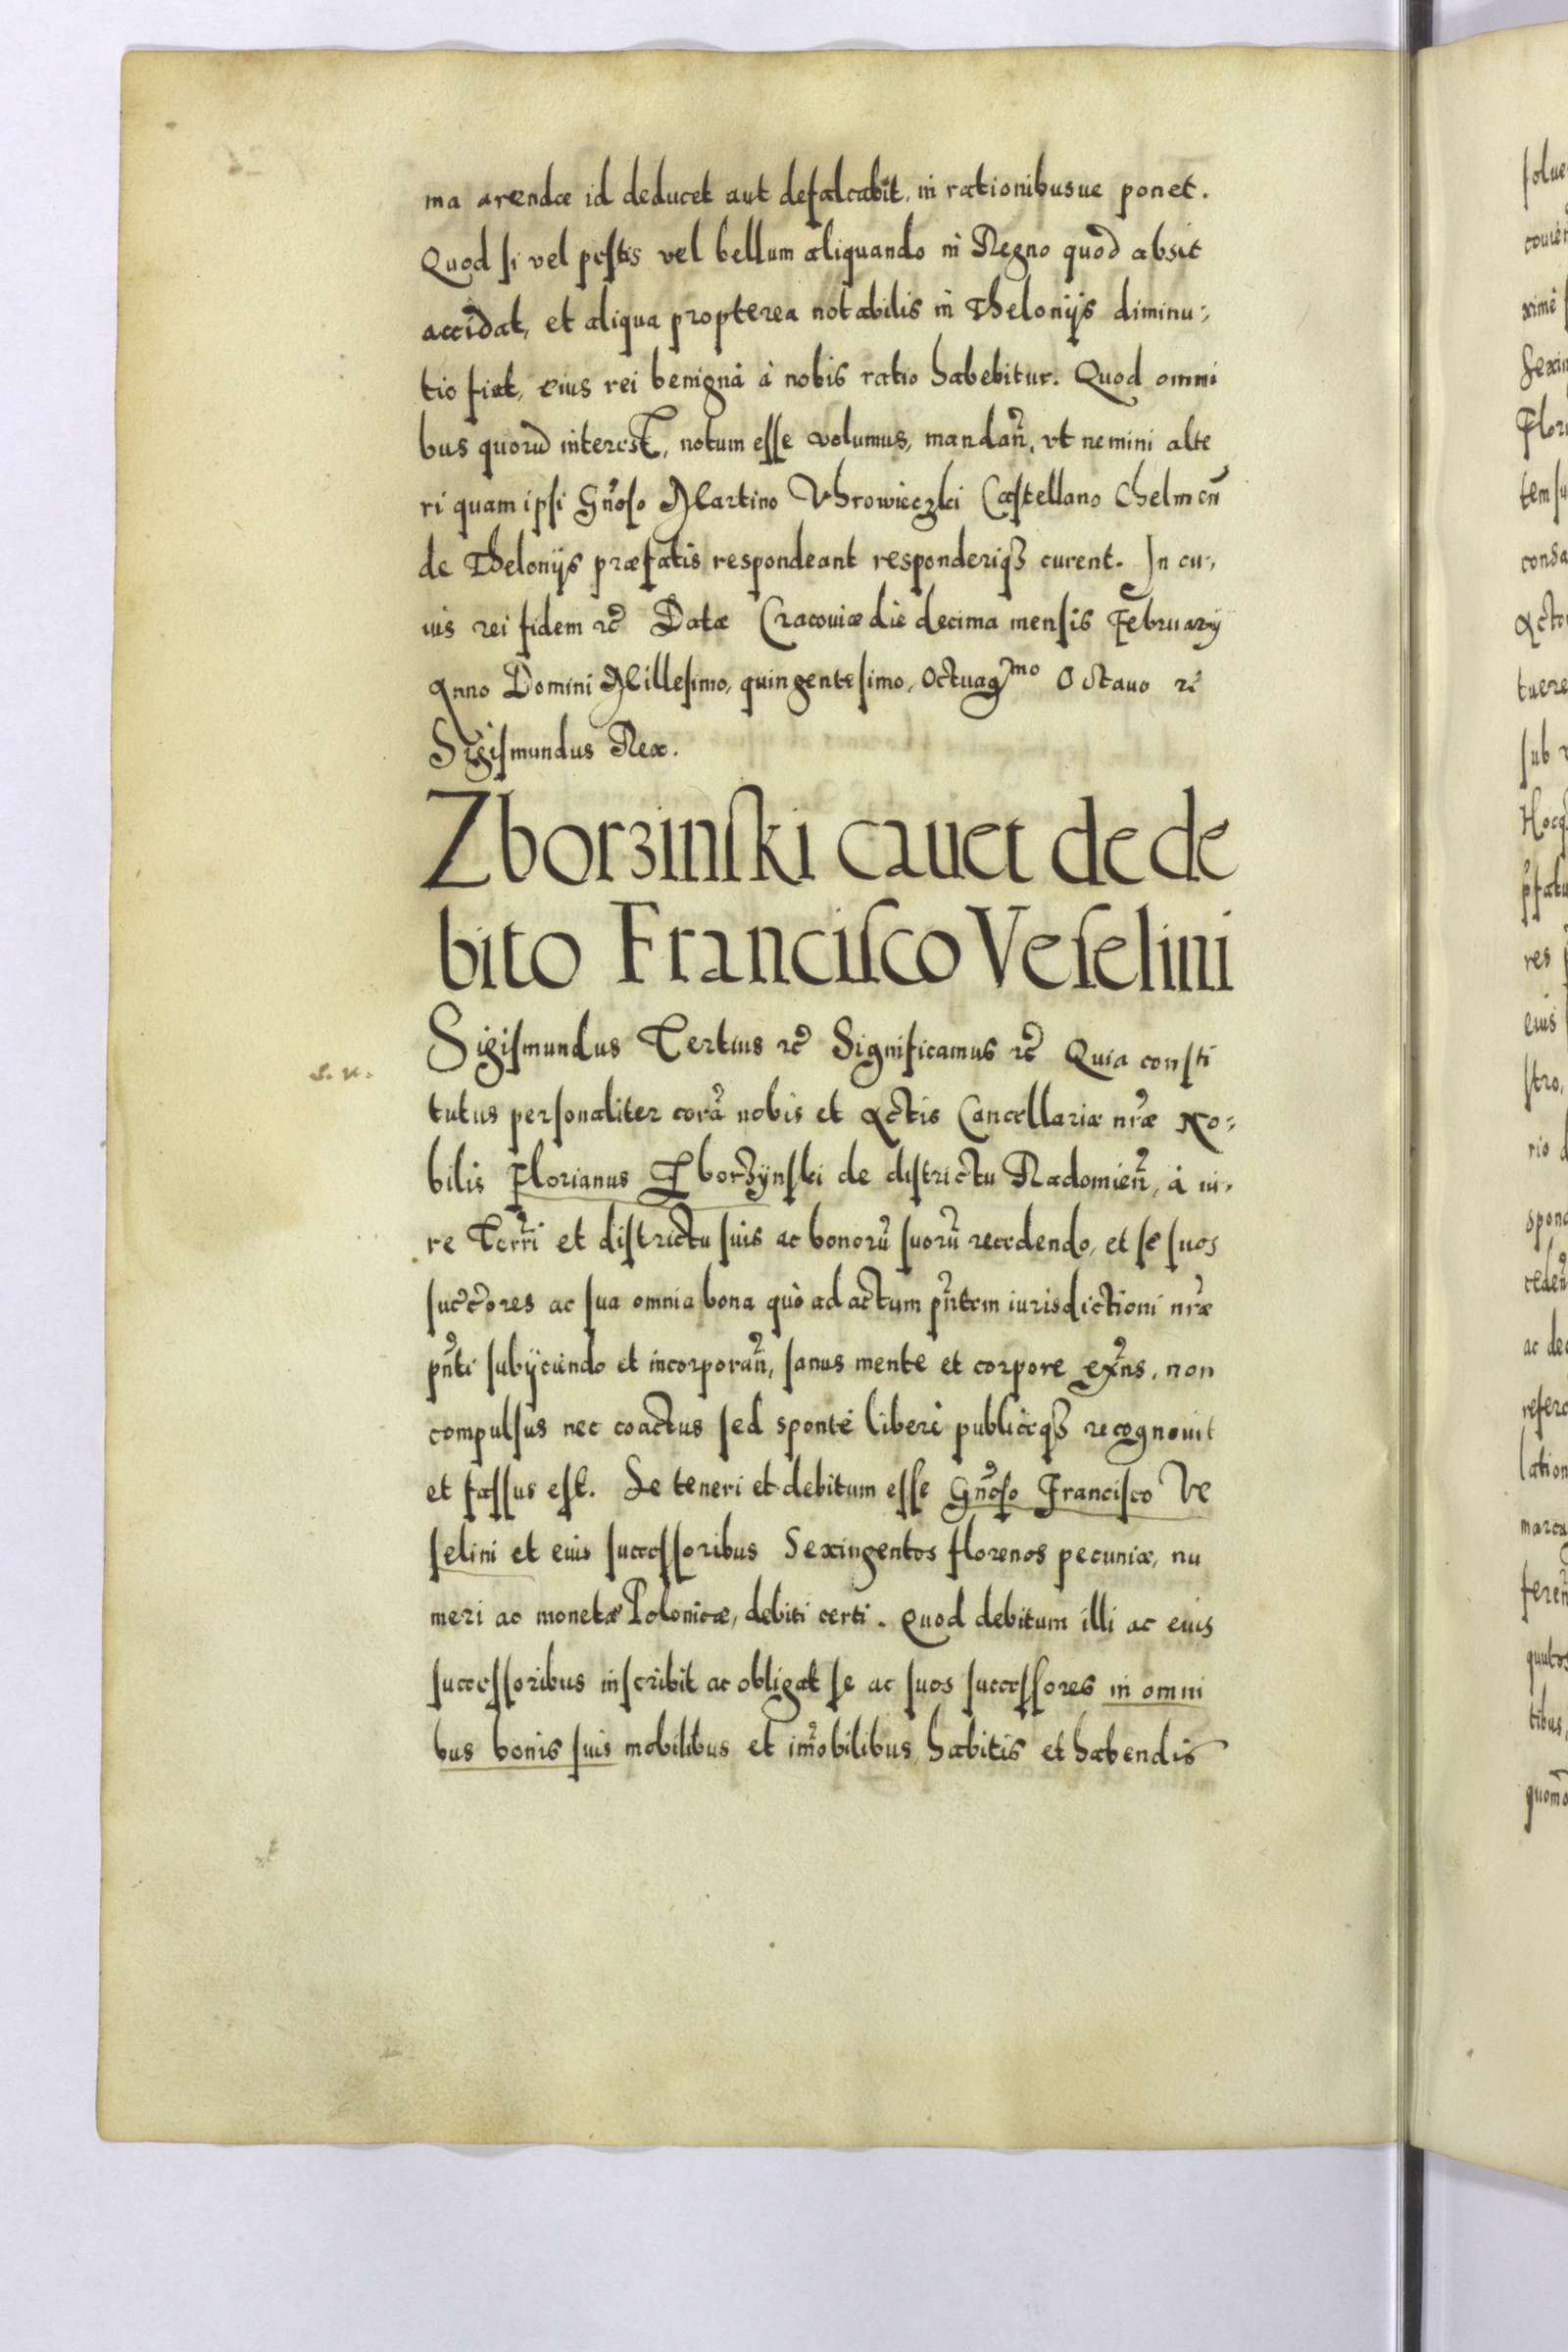 ma arendæ id deducet aut defalcabit, in rationibusue ponet.
Quod si vel pestis vel bellum aliquando in Regno quod absit
accidat, et aliqua propterea notabilis in Theloniis diminu:,
tio fiat, eius rei benigna à nobis ratio habebitur. Quod omni
bus quorũ interest, notum esse volumus, mandañ, vt nemini alte
ri quam ipsi Gñoso Martino Vhrowieczki Castellano Chelmeñ
de Thelonijs præfatis respondeant responderiqȝ curent. In cu:,
ius rei fidem ꝛc̃ Datæ Cracouiæ die decima mensis February
Anno Domini Millesimo, quingentesimo, Octuagmo Octauo ꝛc̃
Sigismundus Rex.
Zborzinſki cauet de de
bito Franciſco Veſelini
Sigismundus Tertius ꝛc̃ Significamus ꝛc̃ Quia consti
s. n.
tutus personaliter corã nobis et Actis Cancellariæ nr̃æ No:,
bilis Florianus Zborzÿnski de districtu Radomieñ, à iu.
re Terr̃i et districtu suis ac bonorũ suorũ recedendo, et se suos
succ̃ores ac sua omnia bona quò ad actum pñtem iurisdictioni nr̃æ
pñti subÿciendo et incorporañ, sanus mente et corpore ex̃ns, non
compulsus nec coactus sed sponte liberè publiceqȝ recognouit
et fassus est. Se teneri et debitum esse Gñoso Francisco Ve
selini et eius successoribus Sexingentos florenos pecuniæ, nu
meri ac monetæ Polonicæ, debiti certi. Quod debitum illi ac eius
successoribus inscribit ac obligat se ac suos successores in omni
bus bonis suis mobilibus et im̃obilibus, habitis et habendis